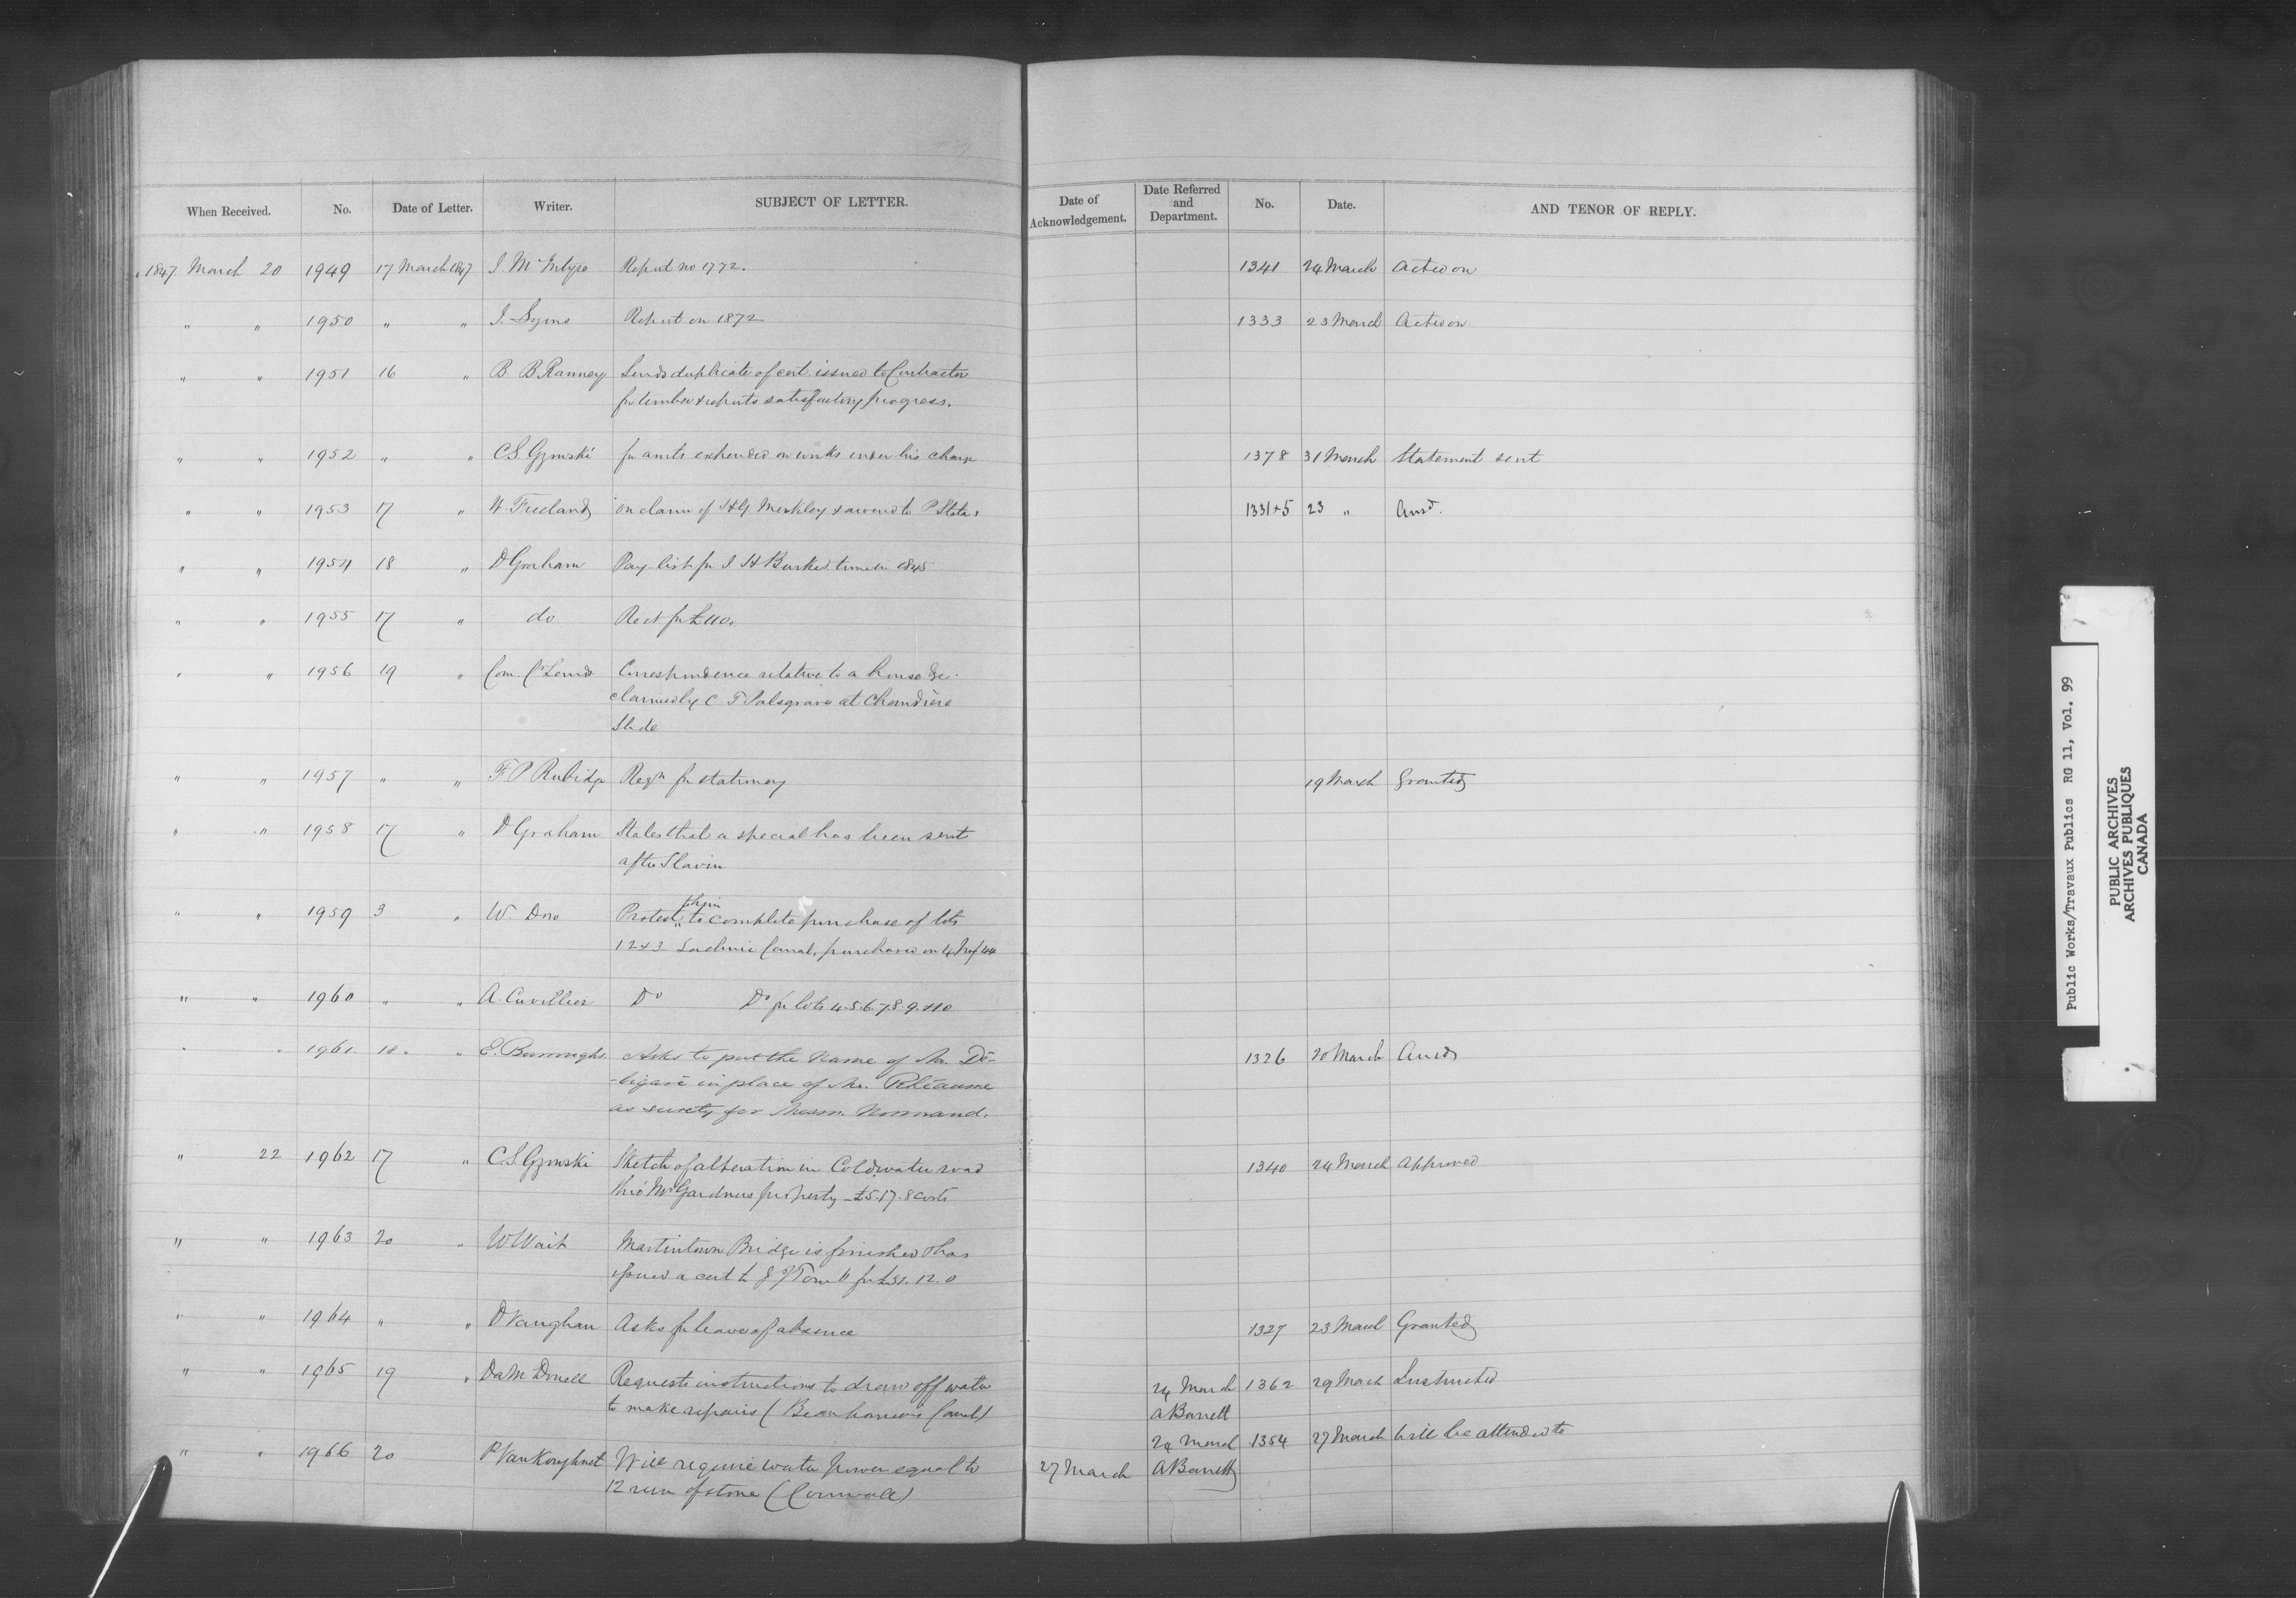 When Received. No. Date of Letter. Writer. SUBJECT OF LETTER. Date of Acknowledgement. Date Referred and Department. No. Date. AND TENOR OF REPLY.
1847 March 20 1949 17 March 1847 J. McIntyre Report no 1772. 1341 24 March Acted on
" " 1950 " " J. Lyons Report on 1872 1333 23 March Acted on
" " 1951 16 " B. B. Ranney Sends duplicate of cert. issued to Contractor
for timber & reports satisfactory progress.
" " 1952 " " C.S. Gzowski for amts expended on works under his charge 1378 31 March Statement sent
" " 1953 17 " W. Freeland on claim of & award to 1331+5 23 " Ansd.
" " 1954 18 " D Graham Pay list for J H time in 1845
" " 1955 17 " do Rect for £110.
" " 1956 19 " Com. Cn Lands Correspondence relative to a house &c.
claimed by C. T. Palsgrave at Chaudière
Slide
" " 1957 " " F P Rubidge Reqn for stationery 19 March Granted
" " 1958 17 " D Graham States that a special has been sent
after Slavin
" " 1959 3 " W Dow Protest to complete purchase of lots
1 2 & 3 Lachine Canal, purchased on
" " 1960 " " A. Cuvillier Do Do for lots 4.5.6.7.8.9.&10
" " 1961. 18. " E. Burroughs. Asks to put the name of Mr. Dé-
-ligaré in place of Mr. Rhéaume
as surety for Messrs. Normand. 1326 20 March Ansd
" 22 1962 17 " C.S. Gzowski Sketch of alteration in Coldwater road
thro' Mr Gardners property - £5.17.8 costs 1340 24 March Approved
" " 1963 20 " W Wait Martintown Bridge is finished & has
issued a cert to for 12.0
" " 1964 " " D Vaughan Asks for leave of absence 1327 23 March Granted
" " 1965 19 " Da McDonell Requests instructions to draw off water
to make repairs (Beauharnois Canal) 24 March A Barrett 1362 29 March Instructed
" " 1966 20 P VanKoughnet Will require water power equal to
12 run of stone (Cornwall) 27 March 24 March A Barrett 1354 27 March Will be attended to
Public Works/Travaux Publics RG 11, Vol. 99
PUBLIC ARCHIVES
ARCHIVES PUBLIQUES
CANADA